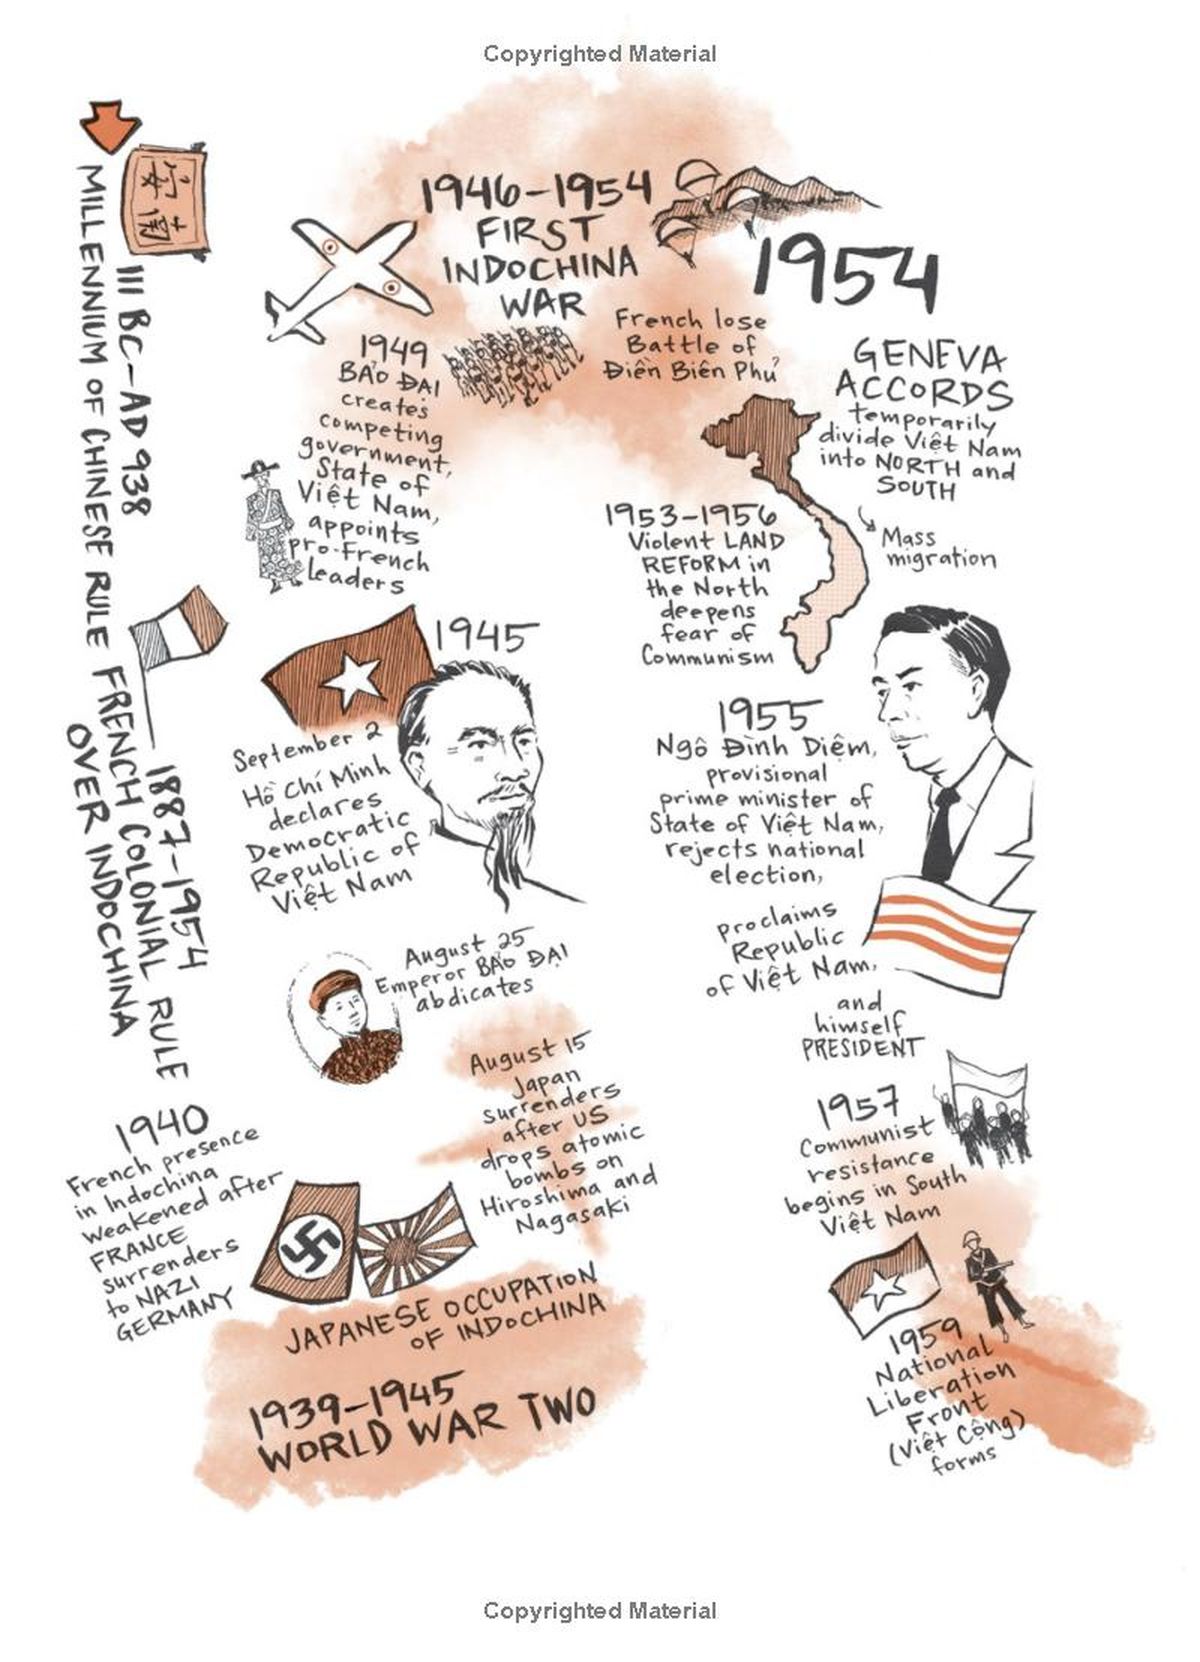 Copyrighted Material
安南
111 BC–AD 938
MILLENNIUM OF CHINESE RULE
1887–1954
FRENCH COLONIAL RULE
OVER INDOCHINA
1940
French presence
in Indochina
weakened after
FRANCE
surrenders
to NAZI
GERMANY
1939–1945
WORLD WAR TWO
JAPANESE OCCUPATION
OF INDOCHINA
August 15
Japan
surrenders
after US
drops atomic
bombs on
Hiroshima and
Nagasaki
August 25
Emperor BẢO ĐẠI
abdicates
1945
September 2
Hồ Chí Minh
declares
Democratic
Republic of
Việt Nam
1946–1954
FIRST
INDOCHINA
WAR
1949
BẢO ĐẠI
creates
competing
government,
State of
Việt Nam,
appoints
pro-French
leaders
1954
French lose
Battle of
Điện Biên Phủ
GENEVA
ACCORDS
temporarily
divide Việt Nam
into NORTH and
SOUTH
Mass
migration
1953–1956
Violent LAND
REFORM in
the North
deepens
fear of
Communism
1955
Ngô Đình Diệm,
provisional
prime minister of
State of Việt Nam,
rejects national
election,
proclaims
Republic
of Việt Nam,
and
himself
PRESIDENT
1957
Communist
resistance
begins in South
Việt Nam
1959
National
Liberation
Front
(Việt Cộng)
forms
Copyrighted Material